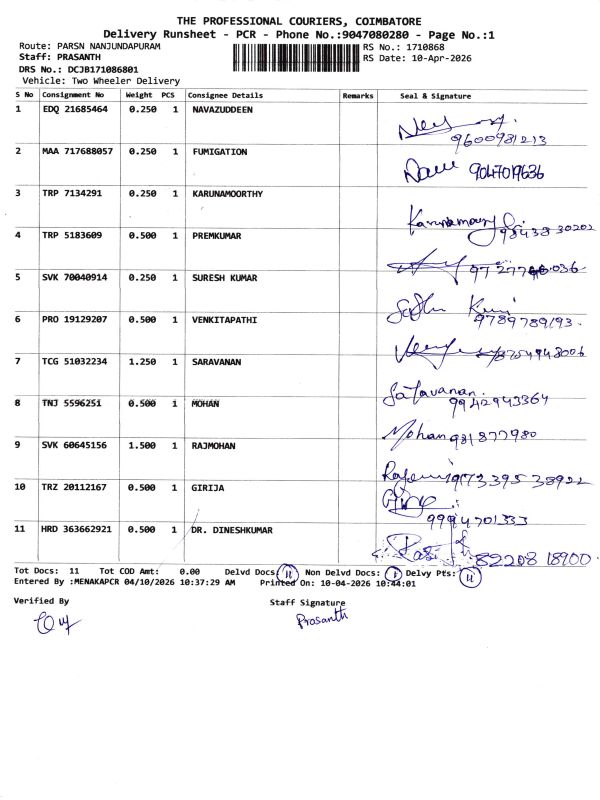 THE PROFESSIONAL COURIERS, COIMBATORE
Delivery Runsheet - PCR - Phone No.:9047080280 - Page No.:1
Route: PARSN NANJUNDAPURAM RS No.: 1710868
Staff: PRASANTH RS Date: 10-Apr-2026
DRS No.: DCJB171086801
Vehicle: Two Wheeler Delivery
S No Consignment No Weight PCS Consignee Details Remarks Seal & Signature
1 EDQ 21685464 0.250 1 NAVAZUDDEEN
9600981213
2 MAA 717688057 0.250 1 FUMIGATION
9047019636
3 TRP 7134291 0.250 1 KARUNAMOORTHY
Karunamoorthy 98438 30202
4 TRP 5183609 0.500 1 PREMKUMAR
5 SVK 70040914 0.250 1 SURESH KUMAR
9789789193
6 PRO 19129207 0.500 1 VENKITAPATHI
8754948006
7 TCG 51032234 1.250 1 SARAVANAN
Saravanan
9942943364
8 TNJ 5596251 0.500 1 MOHAN
Mohan 981877980
9 SVK 60645156 1.500 1 RAJMOHAN
973395 38922
10 TRZ 20112167 0.500 1 GIRIJA
9994701333
11 HRD 363662921 0.500 1 DR. DINESHKUMAR
82208 18900
Tot Docs: 11 Tot COD Amt: 0.00 Delvd Docs: 11 Non Delvd Docs: Delvy Pts: 11
Entered By :MENAKAPCR 04/10/2026 10:37:29 AM Printed On: 10-04-2026 10:44:01
Verified By Staff Signature
Prosanth